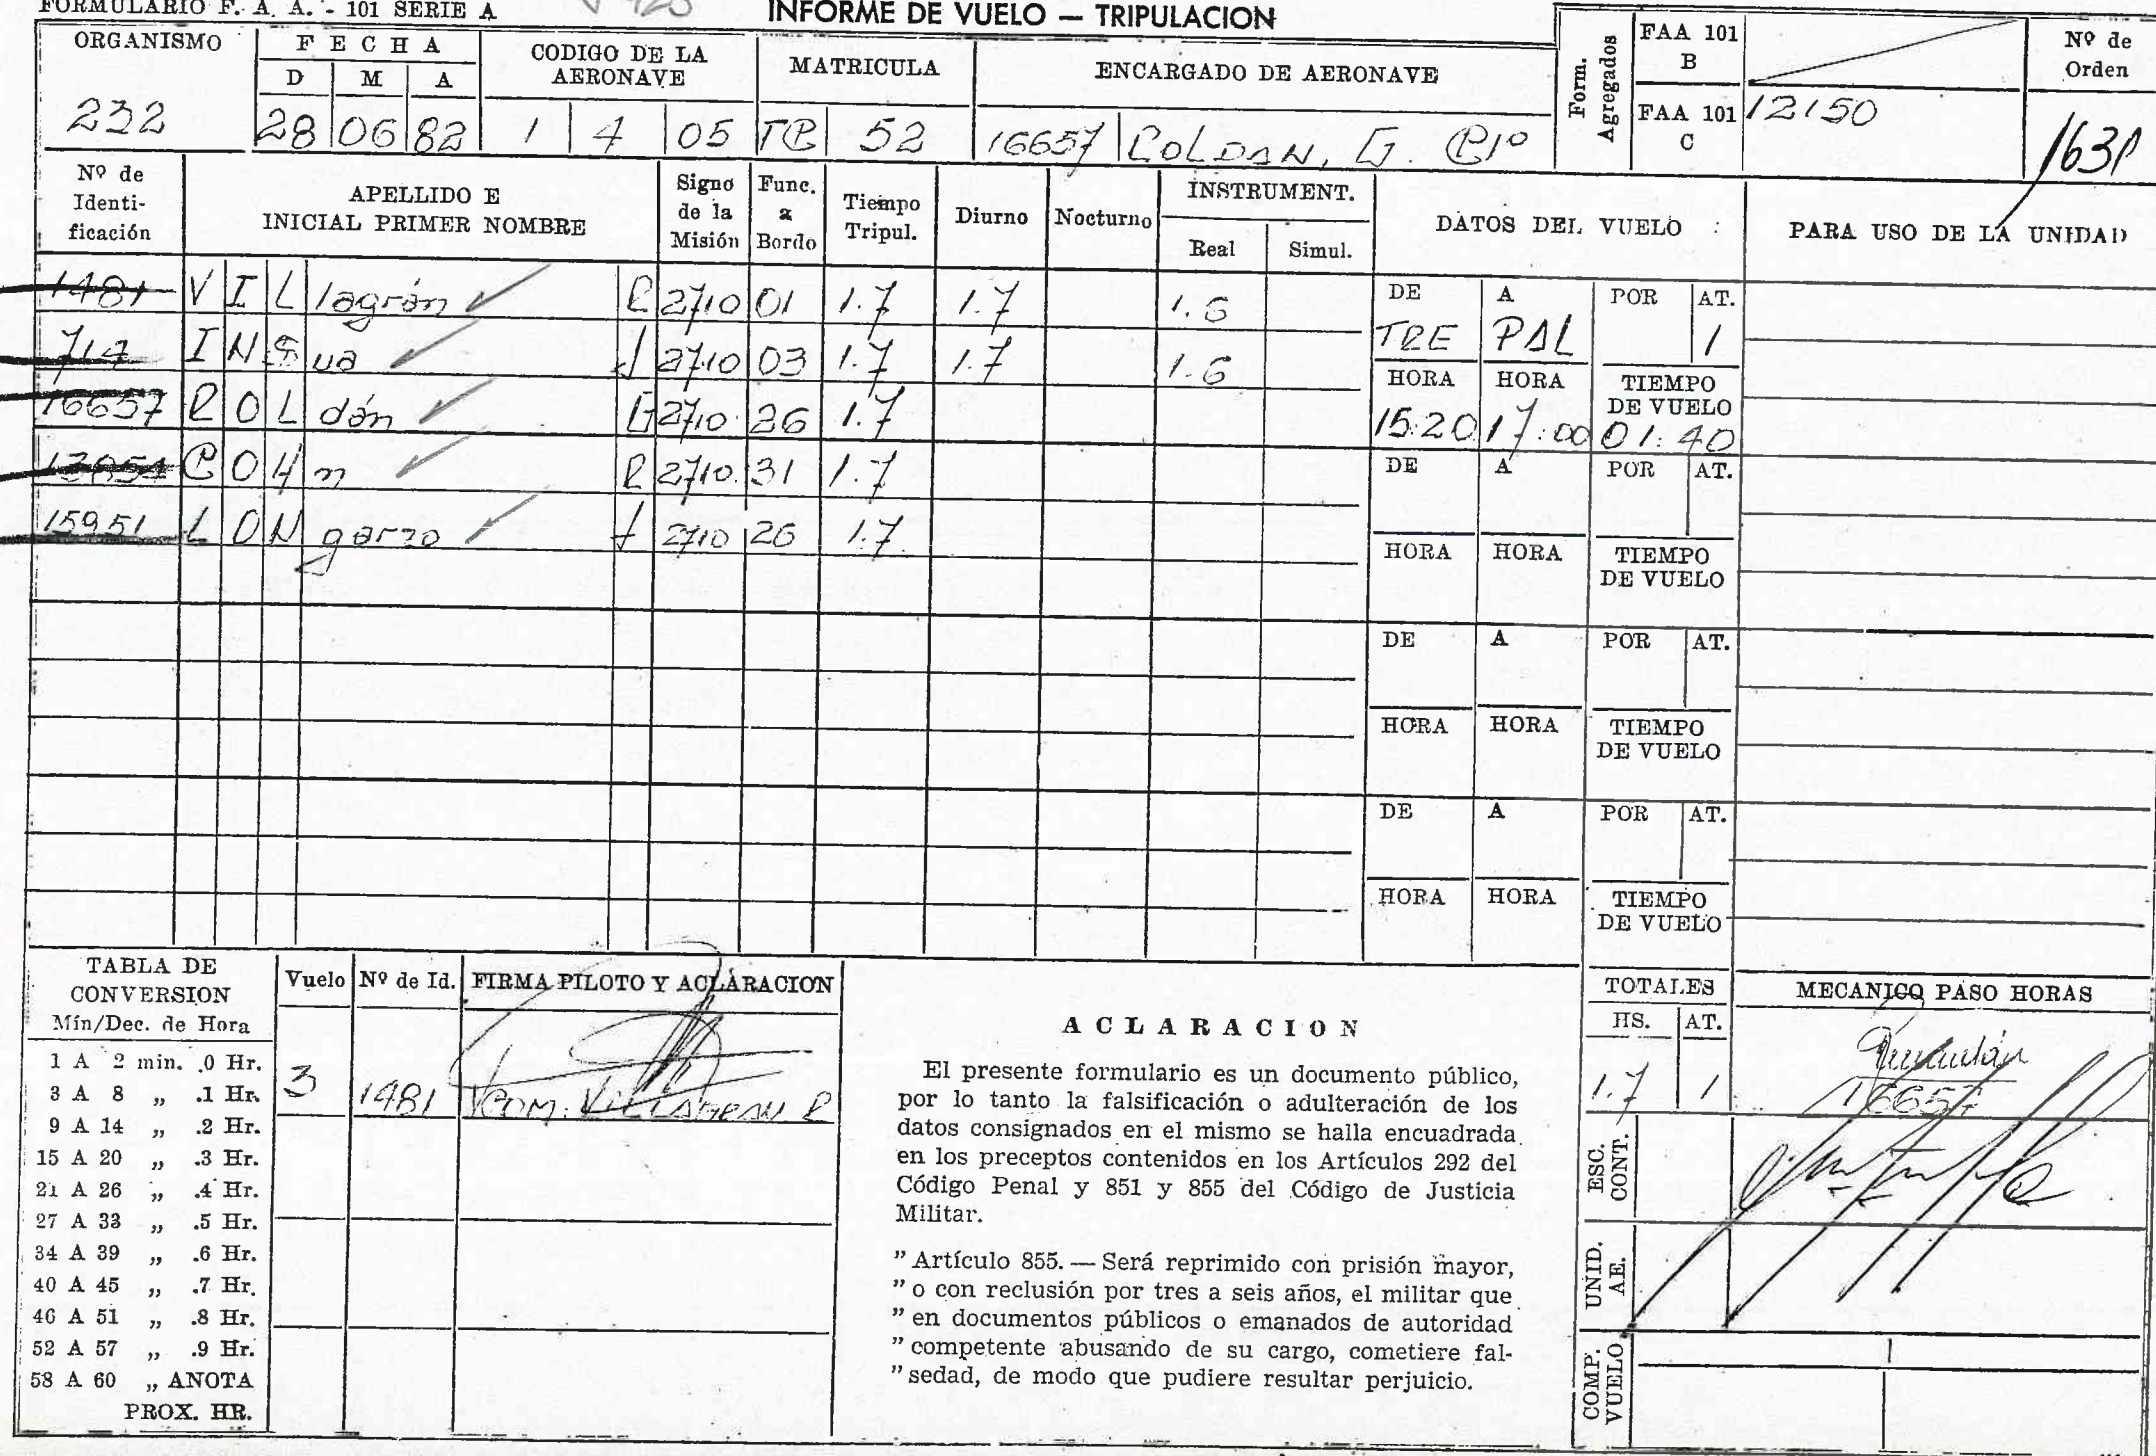 FORMULARIO F. A. A. - 101 SERIE A
INFORME DE VUELO — TRIPULACION
ORGANISMO
232
FECHA
D M A
28 06 82
CODIGO DE LA AERONAVE
1 4 05
MATRICULA
TC 52
ENCARGADO DE AERONAVE
16657 ROLDAN, G. C1º
Form. Agregados
FAA 101 B
FAA 101 C 12150
Nº de Orden
1631
Nº de Identificación
APELLIDO E INICIAL PRIMER NOMBRE
Signo de la Misión
Func. a Bordo
Tiempo Tripul.
Diurno
Nocturno
INSTRUMENT.
Real Simul.
DATOS DEL VUELO
PARA USO DE LA UNIDAD
1481 VILlagrán R 2710 01 1.7 1.7 1.6
714 INSua J 2710 03 1.7 1.7 1.6
16657 ROLdán G 2710 26 1.7
COHn R 2710 31 1.7
15951 LONgarzo J 2710 26 1.7
DE A POR AT.
TRE PAL 1
HORA HORA TIEMPO DE VUELO
15:20 17:00 01:40
DE A POR AT.
HORA HORA TIEMPO DE VUELO
DE A POR AT.
HORA HORA TIEMPO DE VUELO
DE A POR AT.
HORA HORA TIEMPO DE VUELO
TABLA DE CONVERSION
Mín/Dec. de Hora
1 A 2 min. .0 Hr.
3 A 8 „ .1 Hr.
9 A 14 „ .2 Hr.
15 A 20 „ .3 Hr.
21 A 26 „ .4 Hr.
27 A 33 „ .5 Hr.
34 A 39 „ .6 Hr.
40 A 45 „ .7 Hr.
46 A 51 „ .8 Hr.
52 A 57 „ .9 Hr.
58 A 60 „ ANOTA
PROX. HR.
Vuelo Nº de Id. FIRMA PILOTO Y ACLARACION
3 1481 VCOM. VILLAGRAN R
ACLARACION
El presente formulario es un documento público,
por lo tanto la falsificación o adulteración de los
datos consignados en el mismo se halla encuadrada
en los preceptos contenidos en los Artículos 292 del
Código Penal y 851 y 855 del Código de Justicia
Militar.
" Artículo 855. — Será reprimido con prisión mayor,
" o con reclusión por tres a seis años, el militar que
" en documentos públicos o emanados de autoridad
" competente abusando de su cargo, cometiere fal-
" sedad, de modo que pudiere resultar perjuicio.
TOTALES
HS. AT.
1.7 1
MECANICO PASO HORAS
16657
ESC. CONT.
UNID. AE.
COMP. VUELO